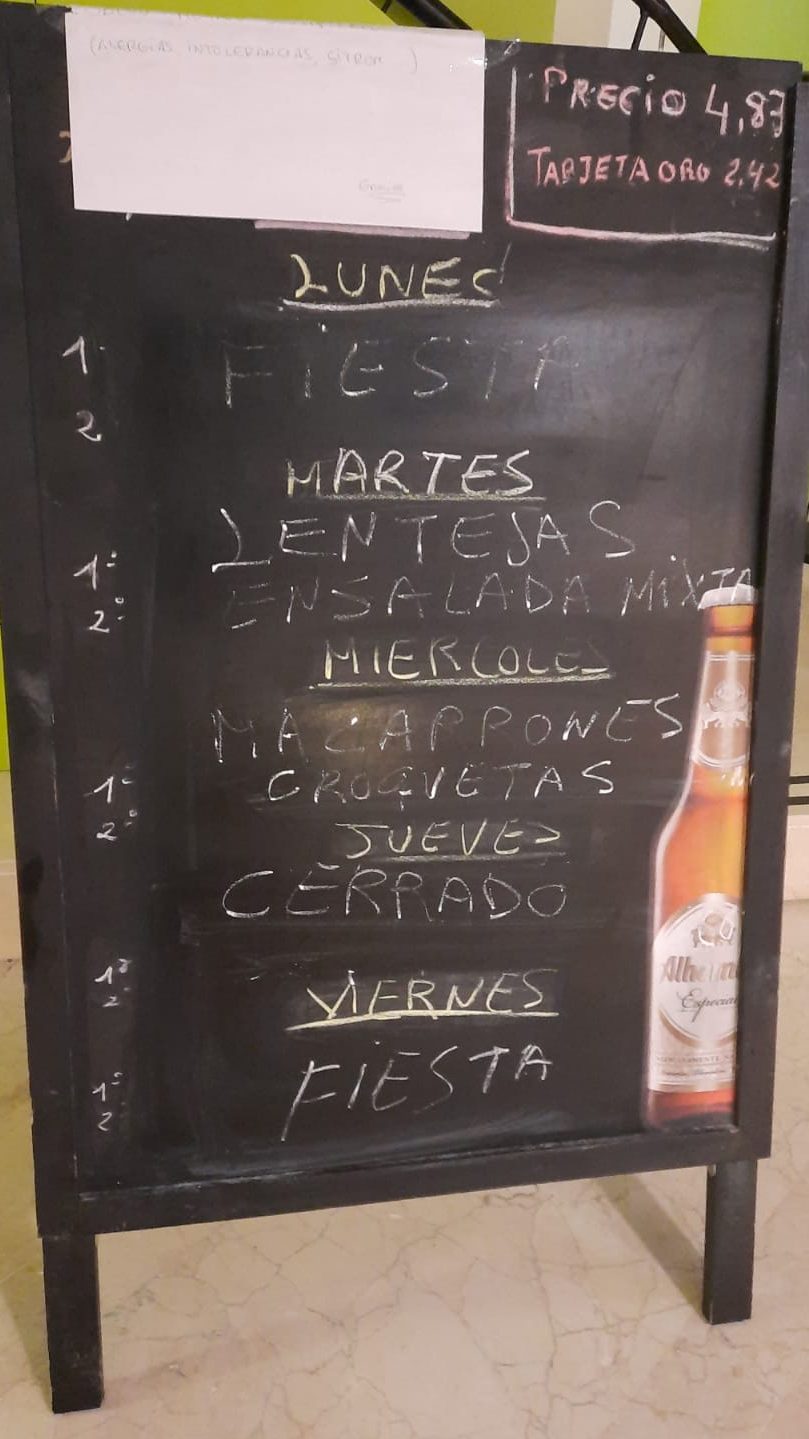 (ALERGIAS INTOLERANCIAS, SITROM )
Gracias
PRECIO 4,83
TARJETA ORO 2,42
LUNES
1º FIESTA
2
MARTES
1º LENTEJAS
2º ENSALADA MIXTA
MIERCOLES
1º MACARRONES
2º CROQUETAS
JUEVES
CERRADO
1º
2º
VIERNES
1º FIESTA
2º
Alhambra
Especial